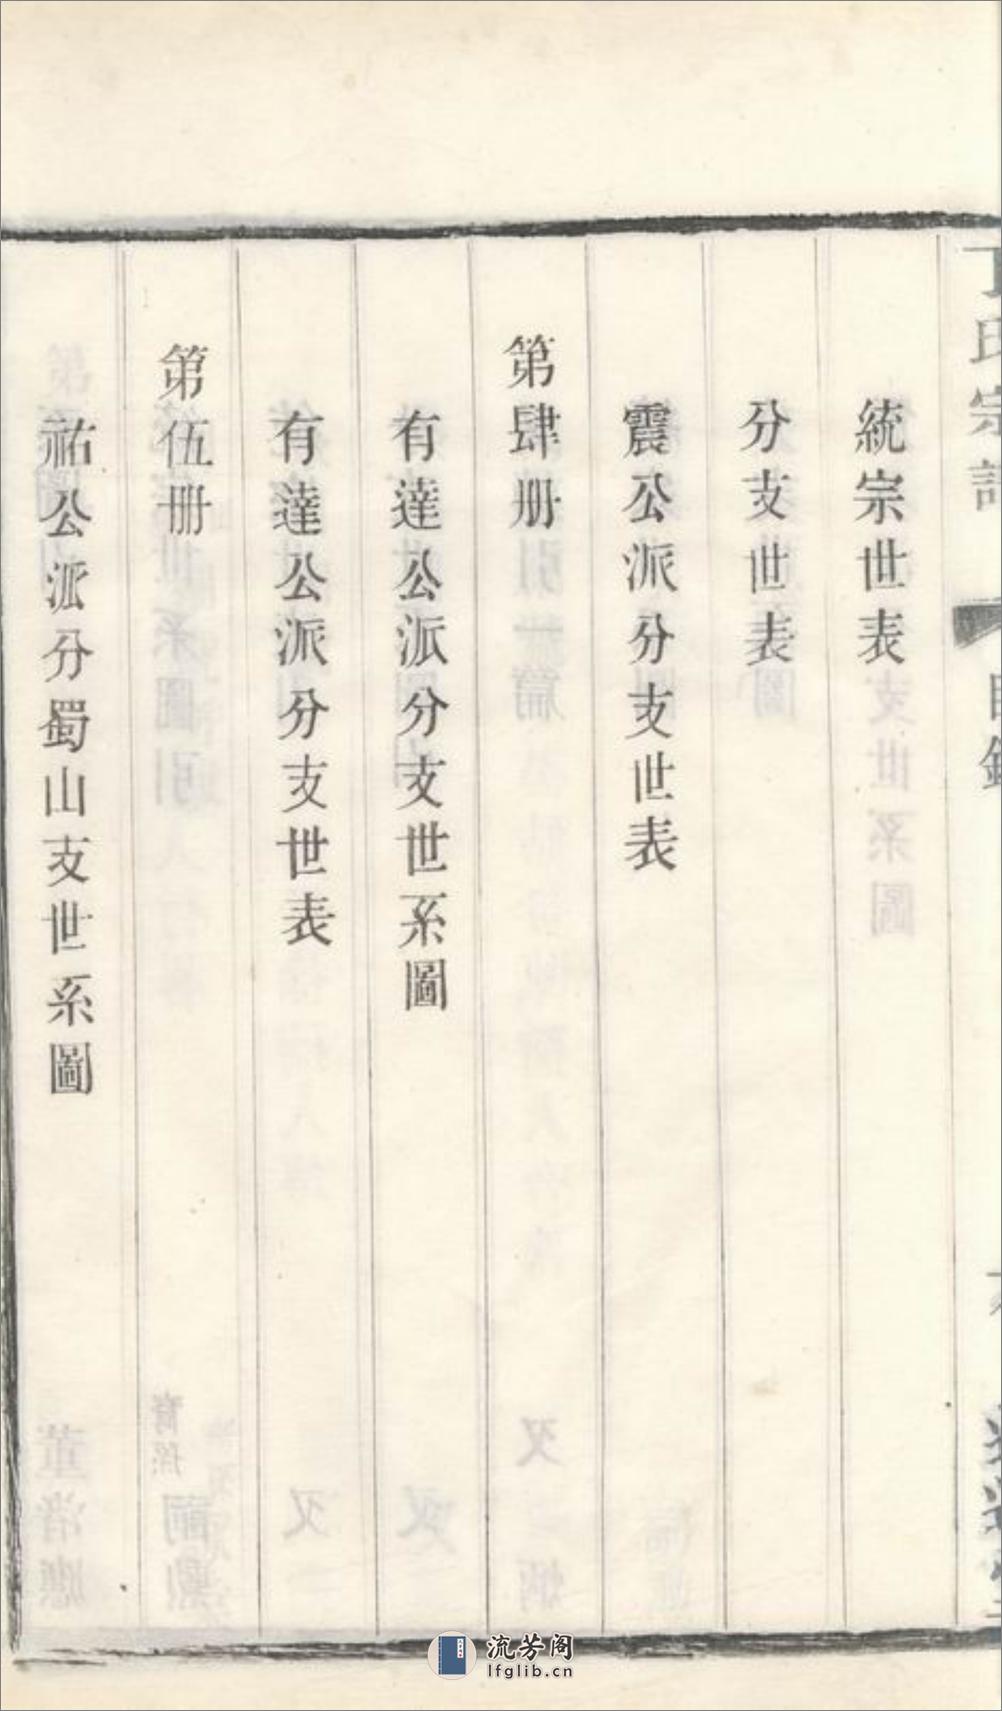 丁氏宗譜
目錄
統宗世表
分支世表
震公派分支世表
第肆册
有達公派分支世系圖
有達公派分支世表
第伍册
祐公派分蜀山支世系圖
流芳阁
lfglib.cn